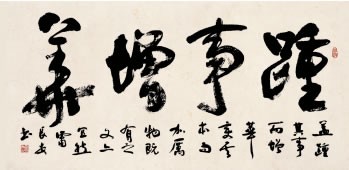 踵事增華
盖踵
其事
而增
華
变其
本而
加厲
物既
有之
文亦
宜然